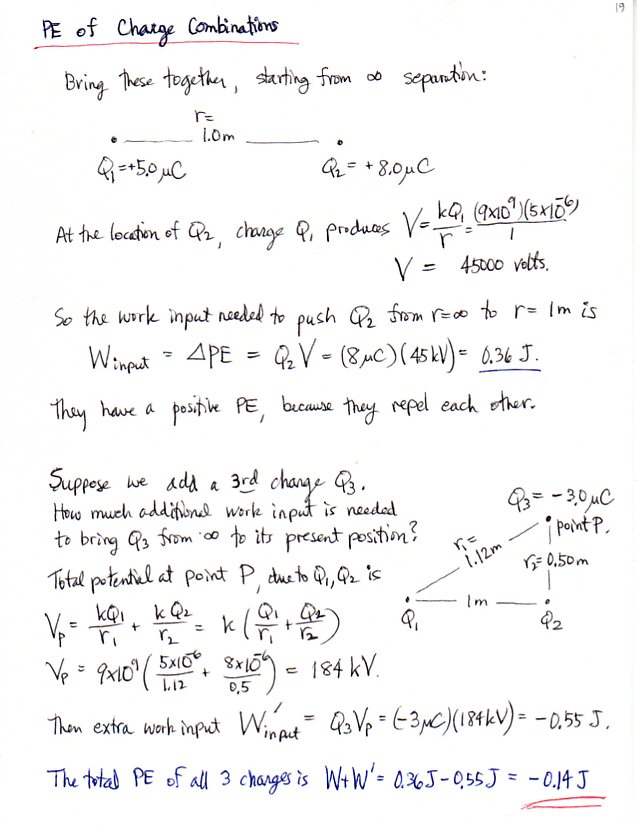 19
PE of Charge Combinations
Bring these together, starting from ∞ separation:
r=
1.0m
Q₁=+5.0μC Q₂= +8.0μC
At the location of Q₂, charge Q₁ produces V= kQ₁/r = (9x10⁹)(5x10⁻⁶)/1
V = 45000 volts.
So the work input needed to push Q₂ from r=∞ to r= 1m is
W input = ΔPE = Q₂V = (8μC)(45kV)= 0.36 J.
They have a positive PE, because they repel each other.
Suppose we add a 3rd charge Q₃.
How much additional work input is needed
to bring Q₃ from ∞ to its present position?
Q₃= -3.0μC
point P.
r₁=
1.12m
r₂=0.50m
1m
Q₁ Q₂
Total potential at point P, due to Q₁,Q₂ is
Vp = kQ₁/r₁ + kQ₂/r₂ = k(Q₁/r₁ + Q₂/r₂)
Vp = 9x10⁹(5x10⁻⁶/1.12 + 8x10⁻⁶/0.5) = 184 kV.
Then extra work input W'input = Q₃Vp = (-3μC)(184kV) = -0.55 J.
The total PE of all 3 charges is W+W' = 0.36J-0.55J = -0.14J